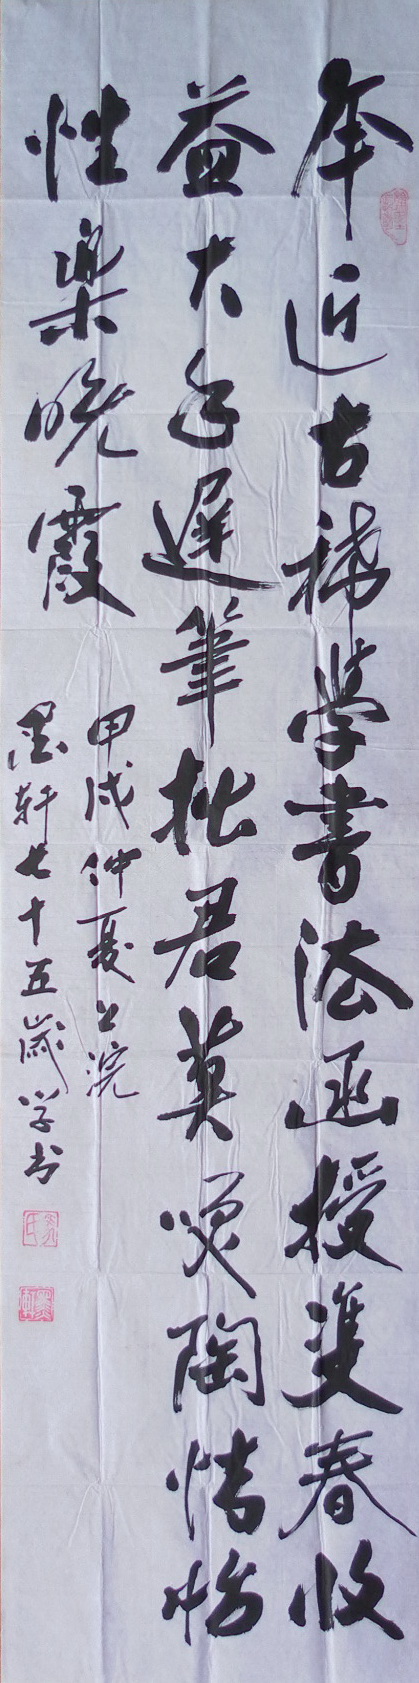 年近古稀学書法函授雙春收
益大手遲筆拙君莫笑陶情怡
性樂晚霞
甲戌仲夏上浣
墨軒七十五歲学书